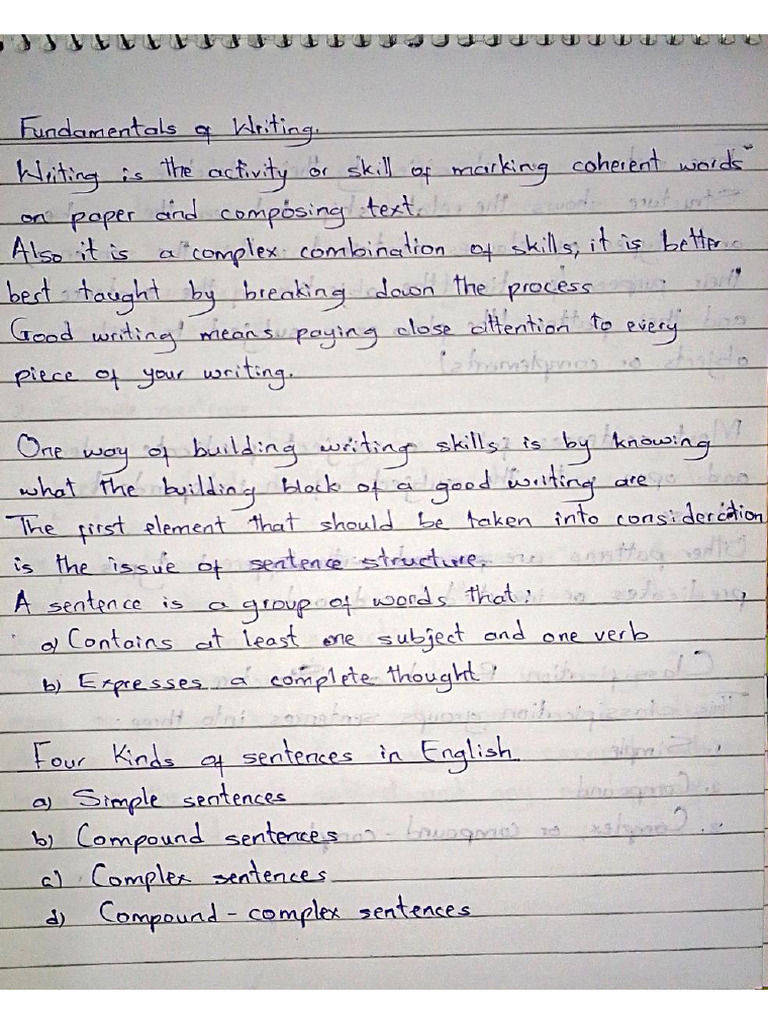 Fundamentals of Writing.
Writing is the activity or skill of marking coherent words
on paper and composing text.
Also it is a complex combination of skills, it is better
best taught by breaking down the process
Good writing means paying close attention to every
piece of your writing.
One way of building writing skills is by knowing
what the building block of a good writing are.
The first element that should be taken into consideration
is the issue of sentence structure.
A sentence is a group of words that:
a) Contains at least one subject and one verb
b) Expresses a complete thought.
Four Kinds of sentences in English
a) Simple sentences
b) Compound sentences
c) Complex sentences
d) Compound - complex sentences